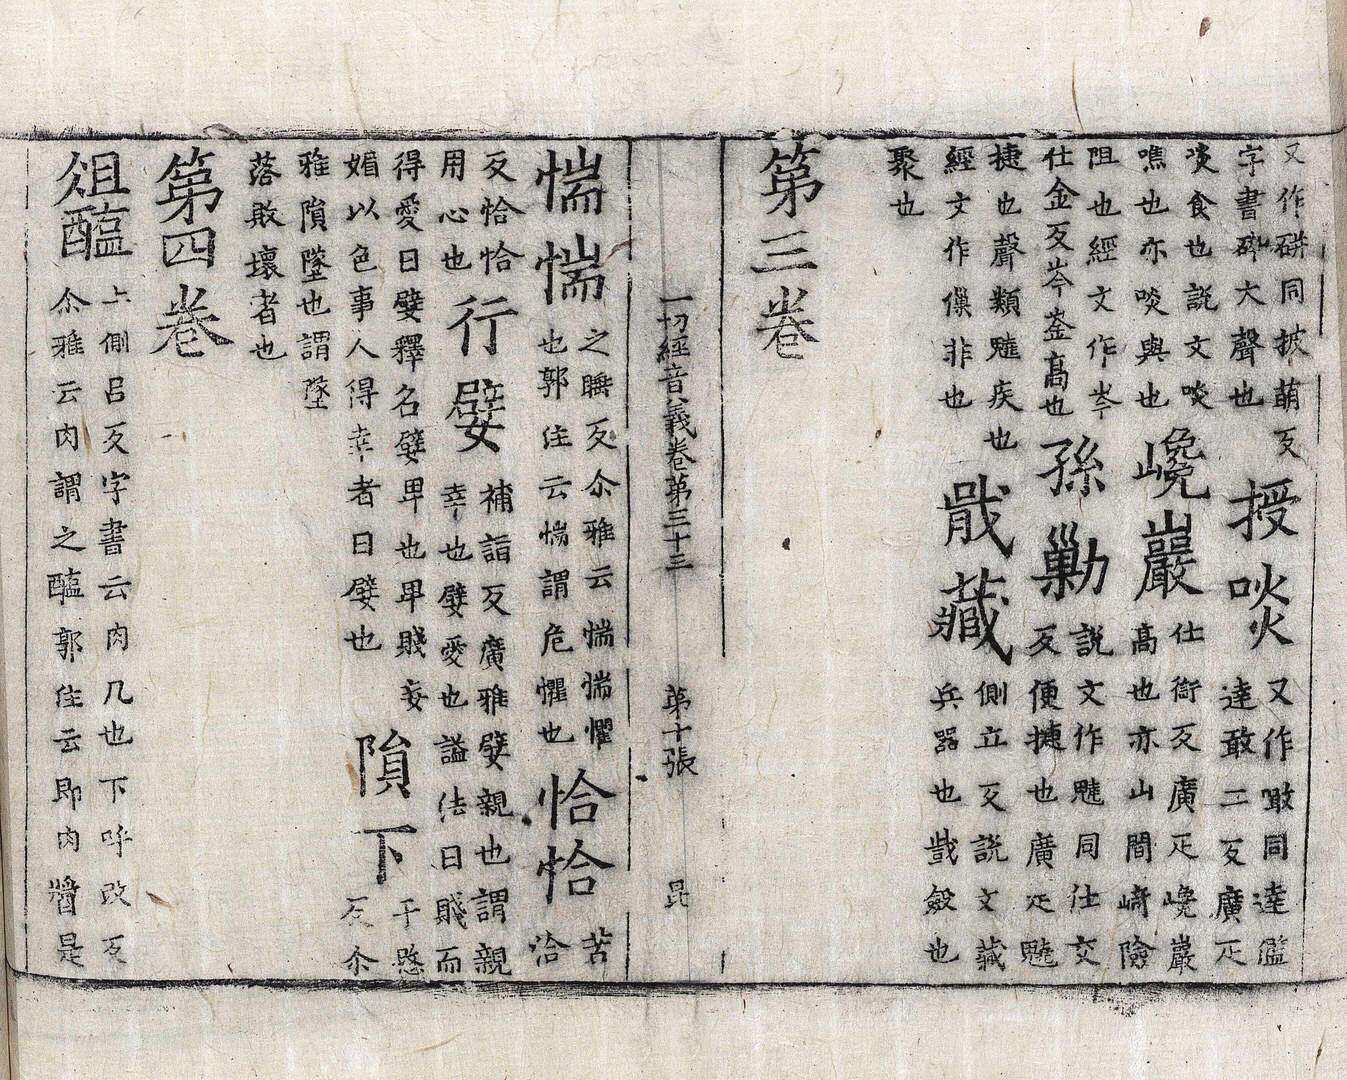 又作硑同披萌反字書硑大聲也授啖又作噉同達濫達敢二反廣疋
啖食也說文啖噍也亦啖與也巉巖仕銜反廣疋巉巖高也亦山間崎險
阻也經文作岑仕金反岑崟高也孫勦說文作魑同仕交反便揵也廣疋魑
揵也聲類魑疾也經文作僳非也戢藏側立反說文蔵兵器也戢斂也
聚也
第三卷
一切經音義卷第三十三 第十張 昆
惴惴之睡反尒雅云惴惴懼也郭住云惴謂危懼也恰恰苦洽
反恰恰用心也行嬖補詣反廣雅嬖親也謂親幸也嬖愛也謚法曰賤而
得愛曰嬖釋名嬖卑也卑賤妾媚以色事人得幸者曰嬖也隕下于愍反尒
雅隕墜也謂墜落敗壞者也
第四卷
俎醢上側呂反字書云肉几也下呼改反尒雅云肉謂之醢郭住云即肉醬是